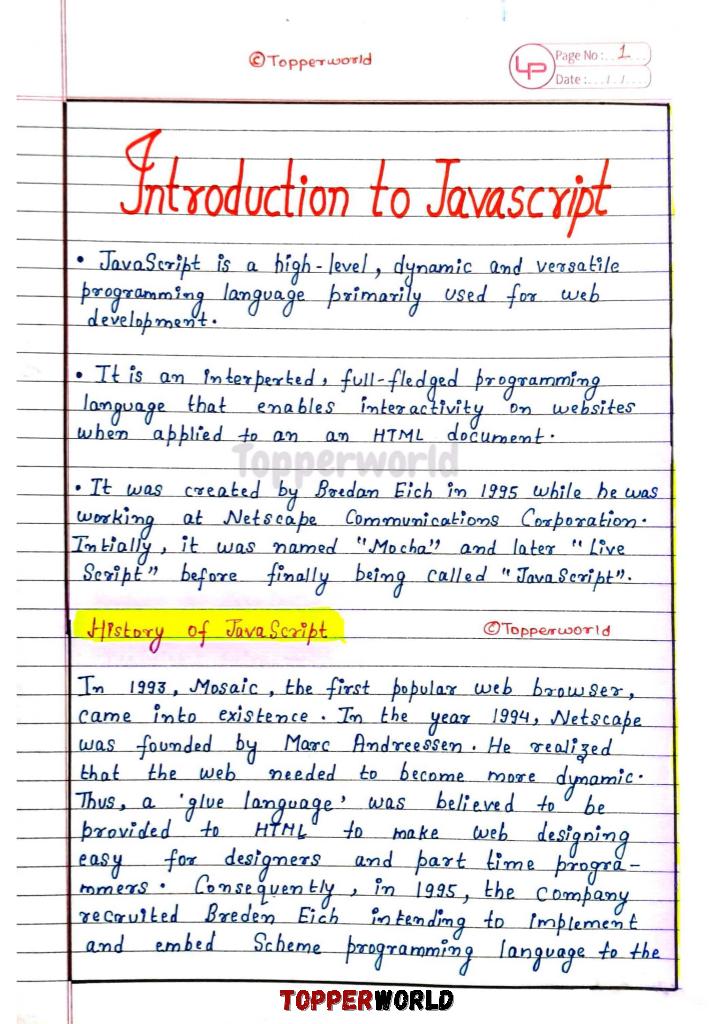 ©Topperworld
Page No: 1
Date: / /
Introduction to Javascript
• JavaScript is a high-level, dynamic and versatile
programming language primarily used for web
development.
• It is an interperted, full-fledged programming
language that enables interactivity on websites
when applied to an an HTML document.
Topperworld
• It was created by Bredan Eich in 1995 while he was
working at Netscape Communications Corporation.
Intially, it was named "Mocha" and later "Live
Script" before finally being called "JavaScript".
History of JavaScript
©Topperworld
In 1993, Mosaic, the first popular web browser,
came into existence. In the year 1994, Netscape
was founded by Marc Andreessen. He realized
that the web needed to become more dynamic.
Thus, a 'glue language' was believed to be
provided to HTML to make web designing
easy for designers and part time progra-
mmers. Consequently, in 1995, the company
recruited Breden Eich intending to implement
and embed Scheme programming language to the
TOPPERWORLD